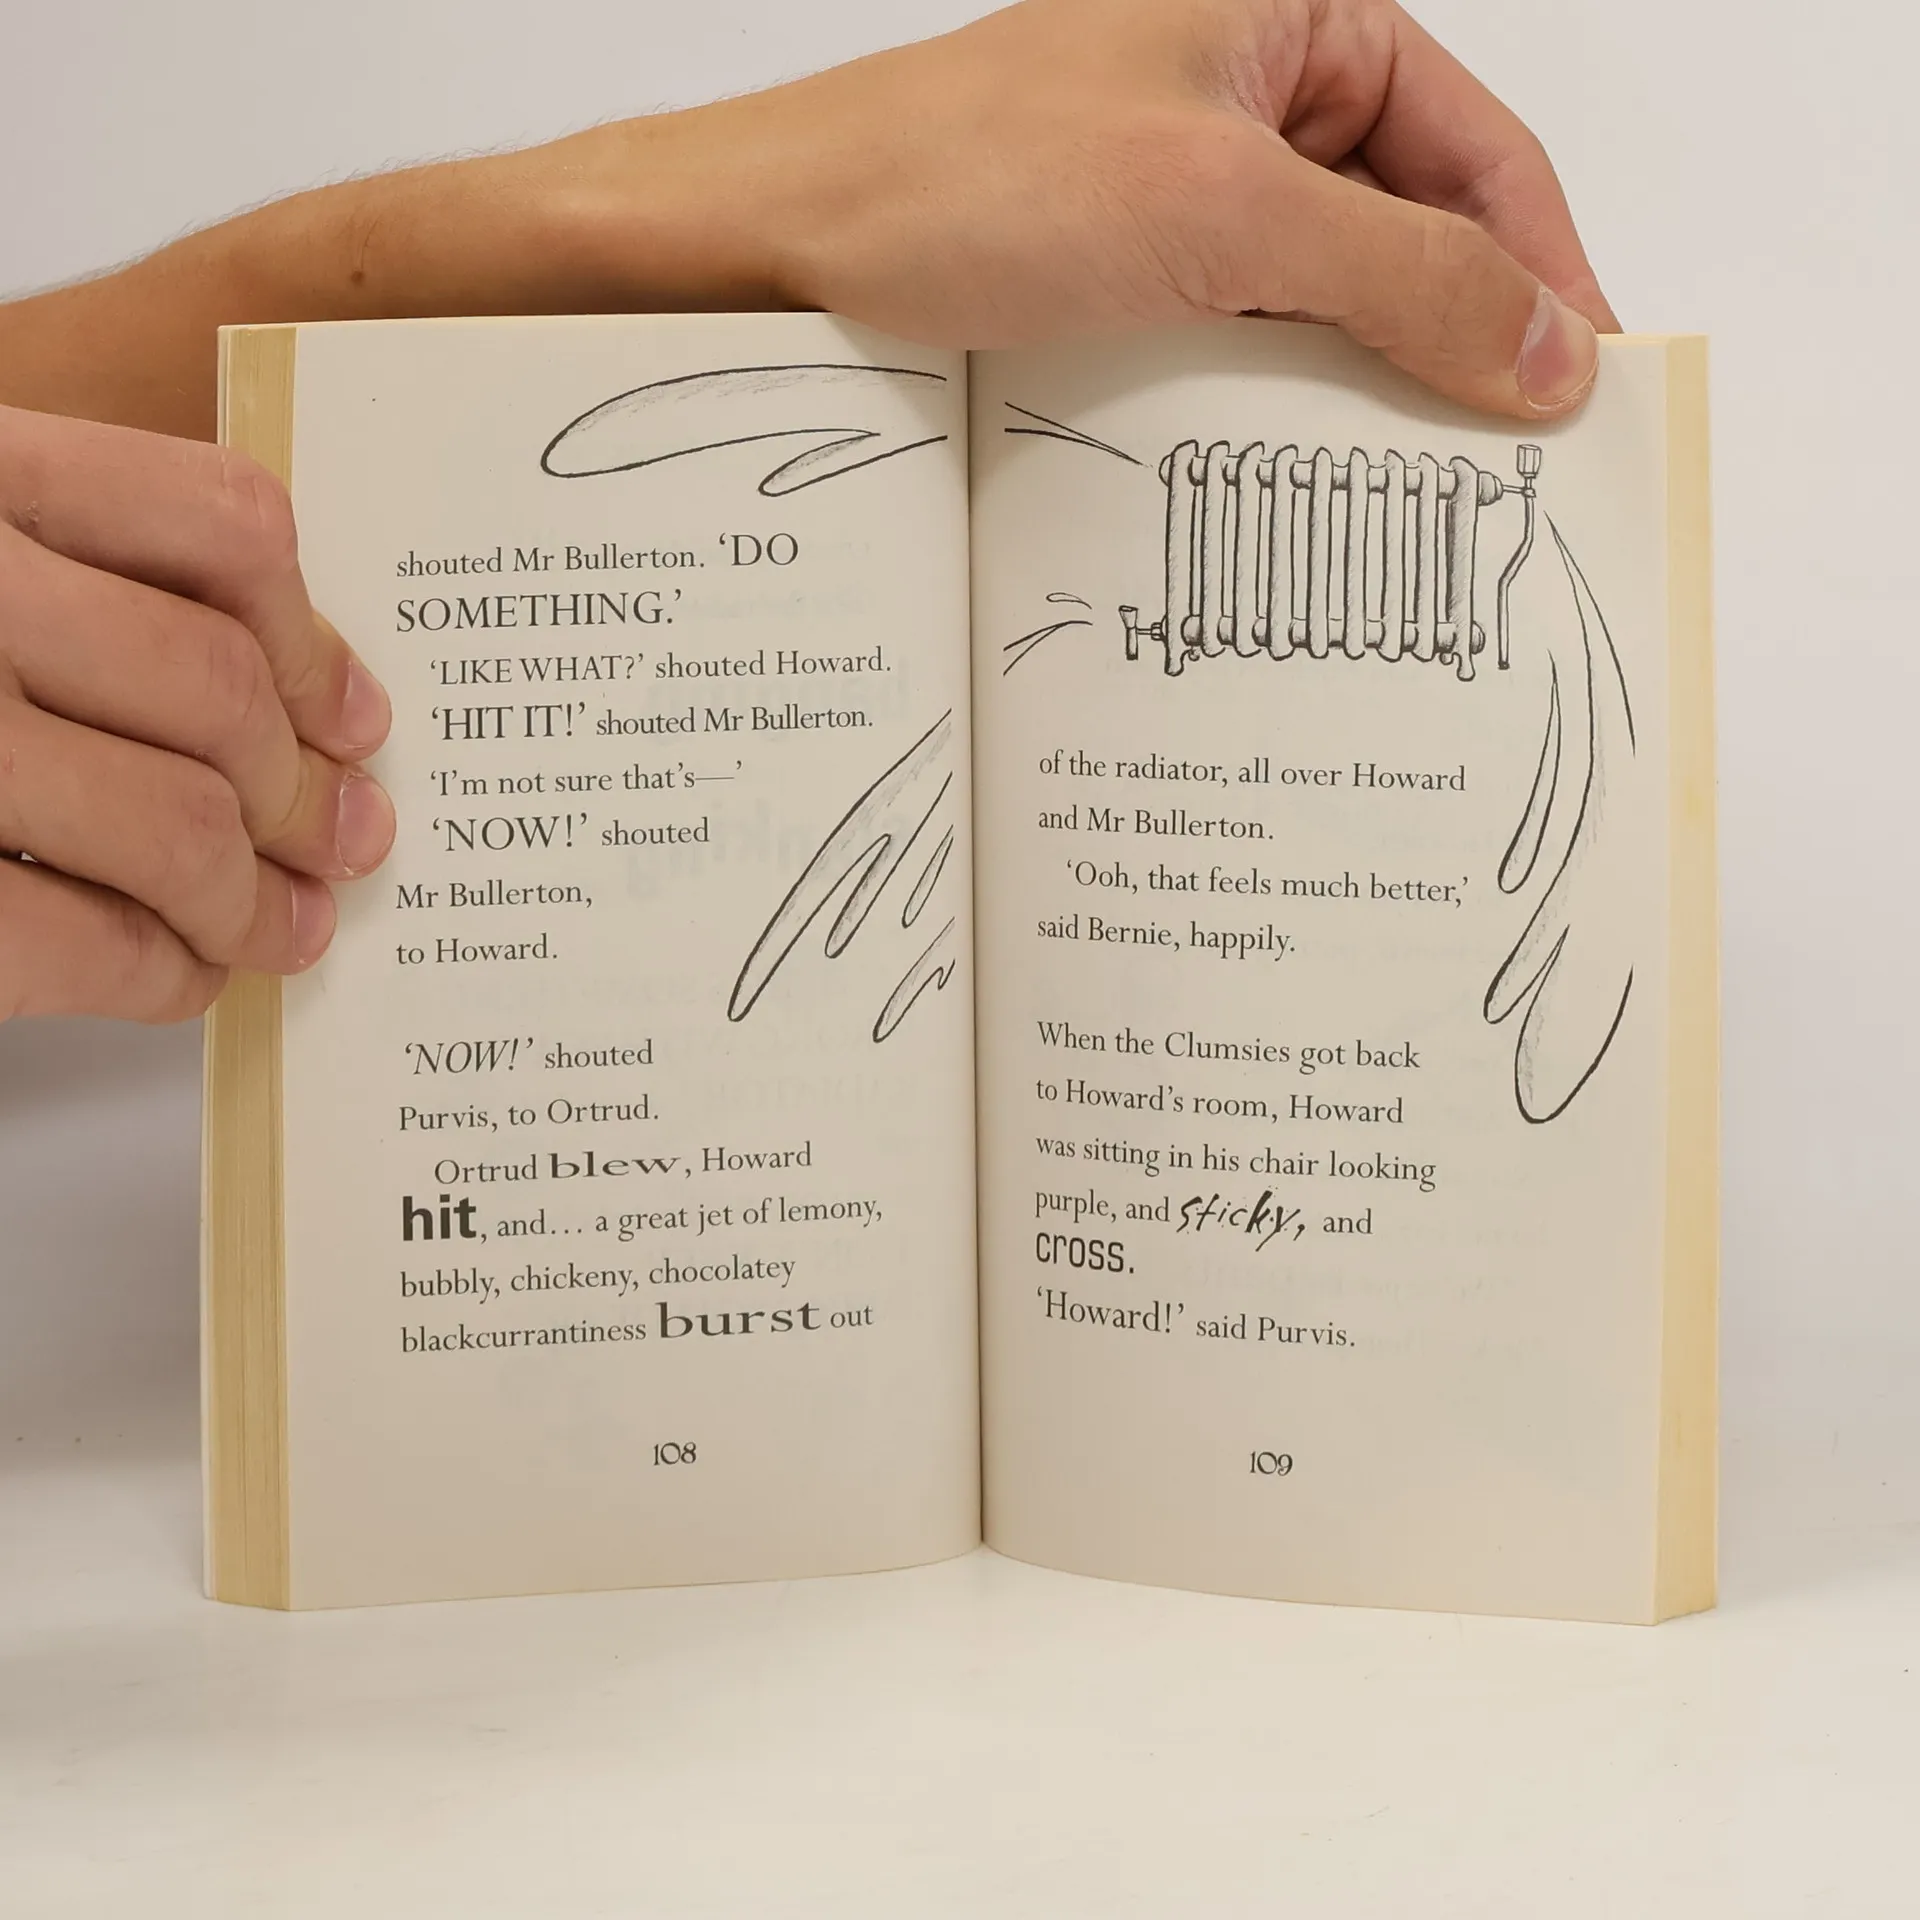 shouted Mr Bullerton. ‘DO
SOMETHING.’
‘LIKE WHAT?’ shouted Howard.
‘HIT IT!’ shouted Mr Bullerton.
‘I’m not sure that’s—’
‘NOW!’ shouted
Mr Bullerton,
to Howard.
‘NOW!’ shouted
Purvis, to Ortrud.
Ortrud blew, Howard
hit, and... a great jet of lemony,
bubbly, chickeny, chocolatey
blackcurrantiness burst out
108
of the radiator, all over Howard
and Mr Bullerton.
‘Ooh, that feels much better,’
said Bernie, happily.
When the Clumsies got back
to Howard’s room, Howard
was sitting in his chair looking
purple, and sticky, and
cross.
‘Howard!’ said Purvis.
109